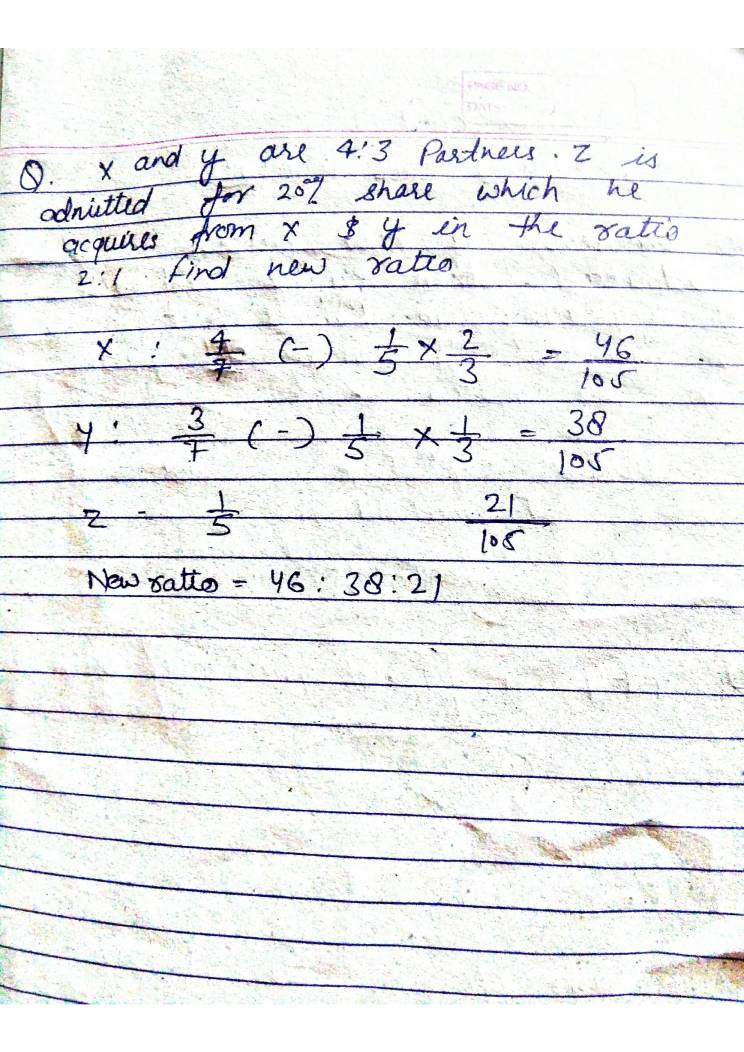 PAGE NO.
DATE
Q. x and y are 4:3 Partners. z is
admitted for 20% share which he
acquires from x & y in the ratio
2:1 find new ratio
x : 4/7 (-) 1/5 × 2/3 = 46/105
y : 3/7 (-) 1/5 × 1/3 = 38/105
z - 1/5 21/105
New ratio = 46 : 38 : 21